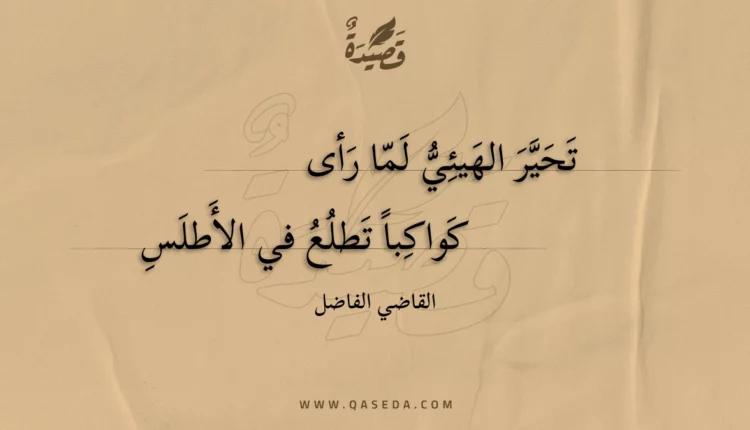 قَصِيدَةٌ
تَحَيَّرَ الهَيئِيُّ لَمّا رَأى
كَواكِباً تَطلُعُ في الأَطلَسِ
القاضي الفاضل
WWW.QASEDA.COM